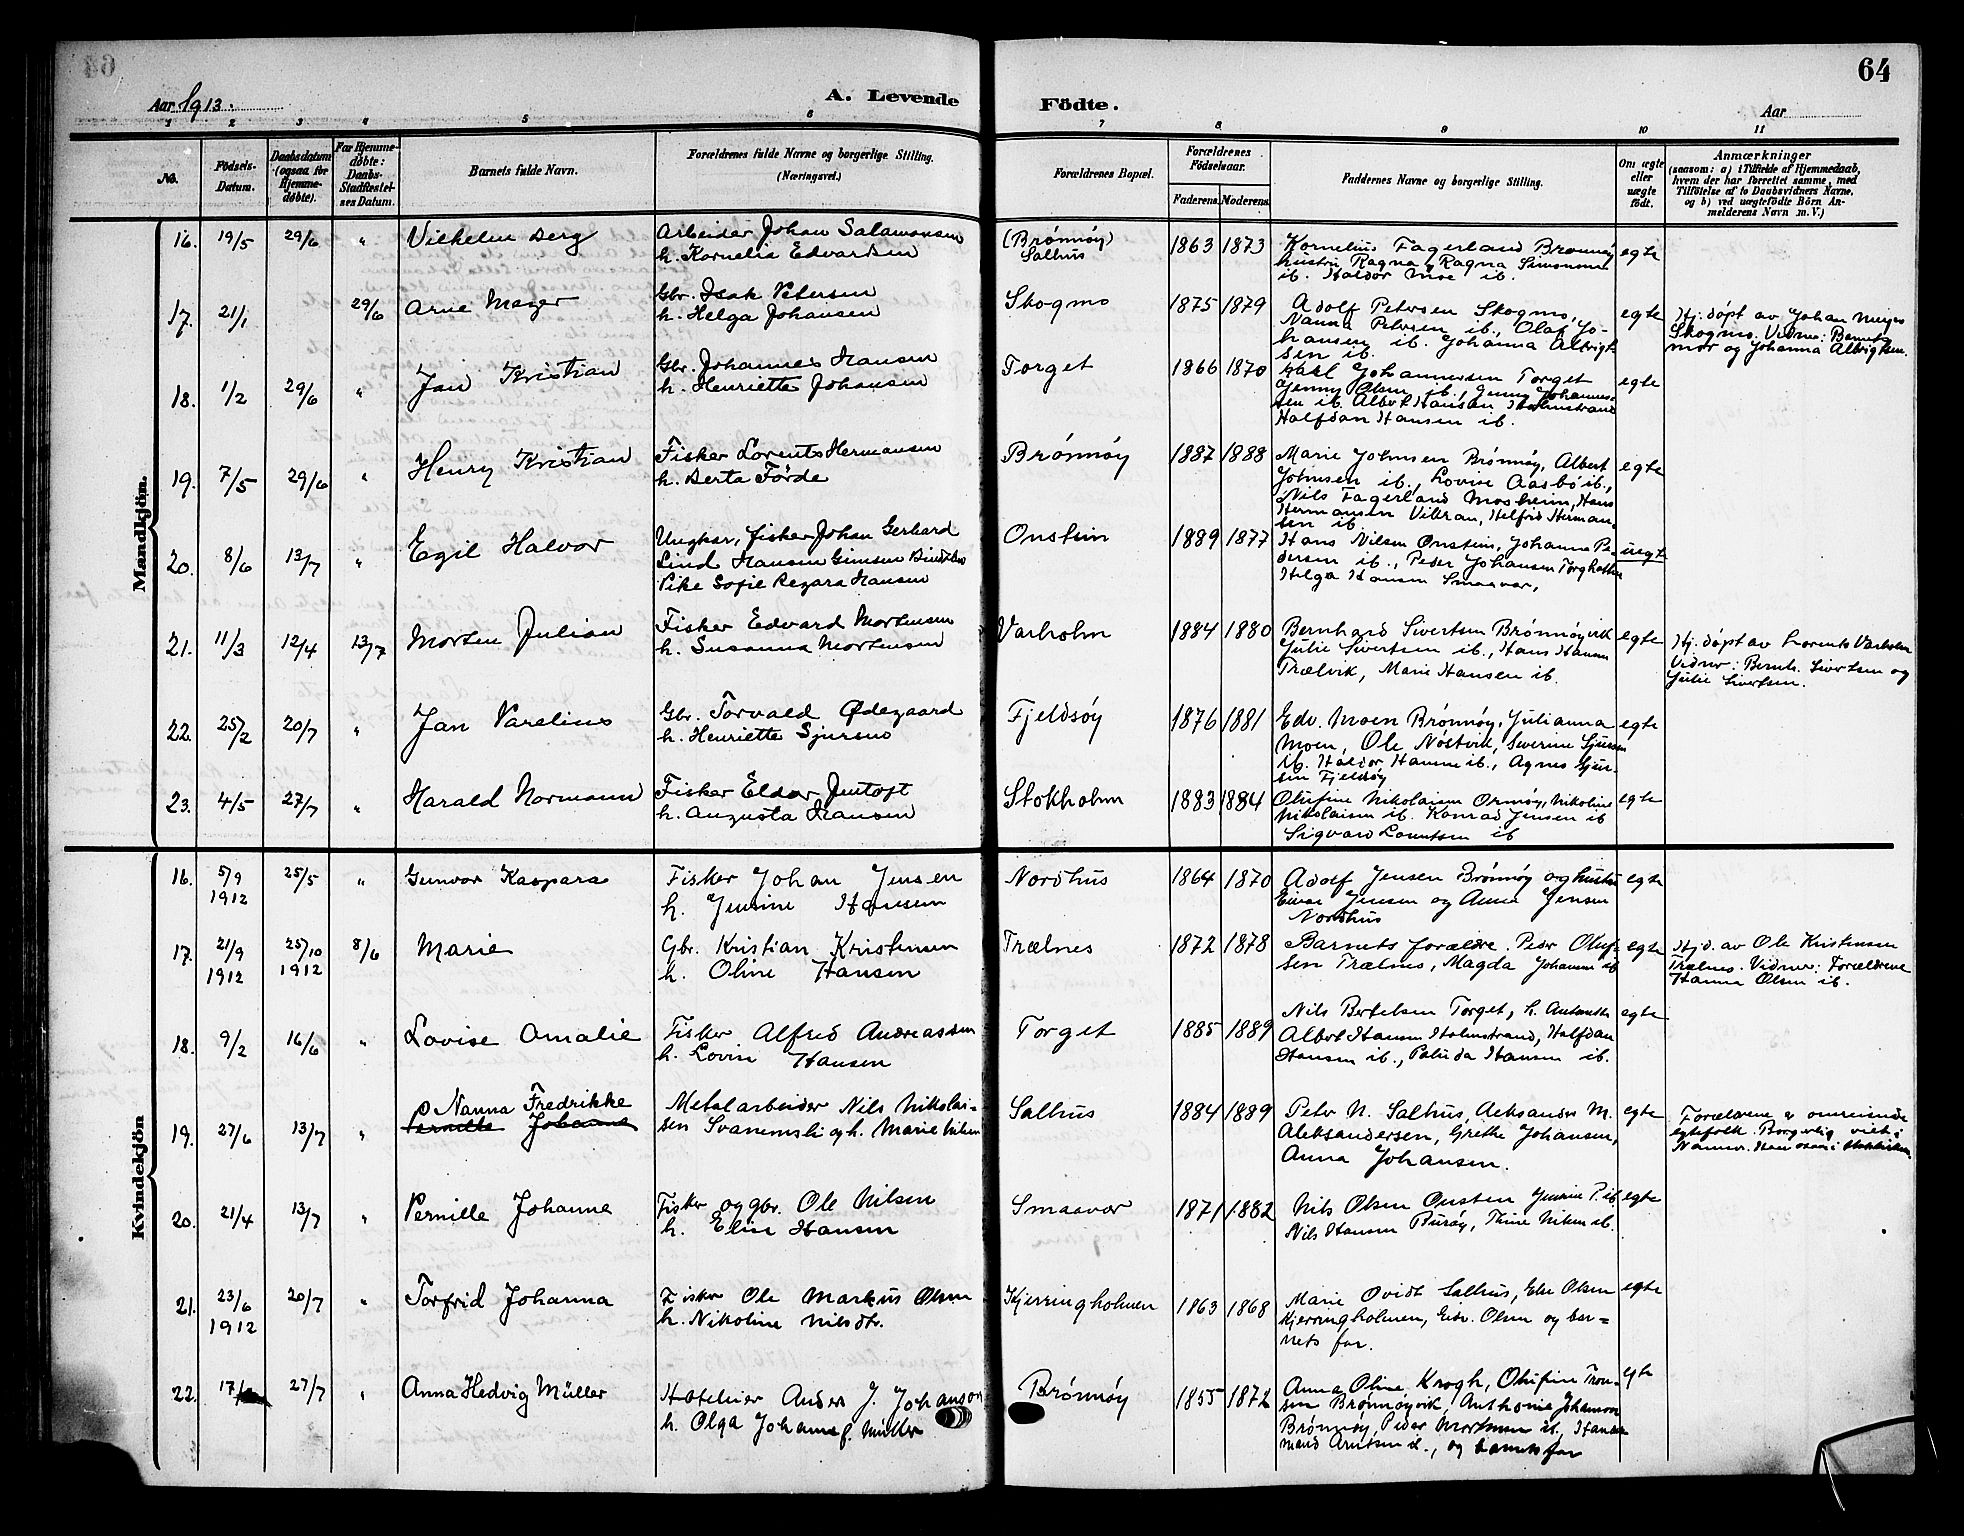 64
Aar 1913.
A. Levende Födte.
Aar
1 2 3 4 5 6 7 8 9 10 11
No.
Födsels-Datum.
Daabsdatum (ogsaa for Hjemmedøbte).
For Hjemmedøbte: Daabs-Stadfæstelses Datum.
Barnets fulde Navn.
Forældrenes fulde Navne og borgerlige Stilling. (Næringsvei.)
Forældrenes Bopæl.
Forældrenes Fødselsaar. Faderens. Moderens.
Faddernes Navne og borgerlige Stilling.
Om ægte eller uægte født.
Anmærkninger (saasom: a) i Tilfælde af Hjemmedaab, hvem der har forrettet samme, med Tilföielse af to Daabsvidners Navne, og b) ved uægtefödte Börn Anmelderens Navn m. V.)
Mandkjön.
16. 19/5 29/6 " Vilhelm Berg
Arbeider Johan Salamonsen
h. Kornelia Edvardsen
(Brønnøy) Salhus 1863 1873
Kornelius Fagerland Brønnøy
hustru Ragna, Ragna Simonsen
ib. Haldor ib.
egte
17. 21/1 29/6 Arne Mager
Gbr. Isak Petersen
h. Helga Johansen
Skogmo 1875 1879
Adolf Petersen Skogmo,
Nanna Petersen ib., Olaf Jo-
hansen ib. Johanna Albrigt-
sen ib.
egte
Hj. døpt av Johan
Skogmo. Vidner: Barnets
mor og Johanna Albrigtsen.
18. 1/2 29/6 " Jan Kristian
Gbr. Johannes Hansen
h. Henriette Johansen
Torget 1866 1870
Karl Johannesen Torget
Jenny Olsen ib., Jenny Johannes-
sen ib. Albert Hansen Holmstrand
Halfdan Hansen ib.
egte
19. 7/5 29/6 " Henry Kristian
Fisker Lorents Hermansen
h. Berta Förde
Brønnøy 1887 1888
Marie Johnsen Brønnøy, Albert
Johnsen ib., Lovise Aasbö ib.,
Nils Fagerland Mosheim, Hans
Hermansen Vikran, Helfrid Herman-
sen ib.
egte
20. 8/6 13/7 " Egil Halvor
Ungkar, fisker Johan Gerhard
Lind Hansen Gimsen Bindalen
Pike Sofie Regara Hansen
Onstein 1889 1877
Hans Nilsen Onstein, Johanna Pe-
dersen ib., Peder Johansen Torghatten
Helga Hansen Smaavær,
uegte
21. 11/3 12/4 13/7 Morten Julian
Fisker Edvard Mortensen
h. Susanna Mortensen
Varholm 1884 1880
Bernhard Sivertsen Brønnøyvik
Julie Sivertsen ib., Hans Hansen
Trælvik, Marie Hansen ib.
egte
Hj. døpt av Lorents Varholm
Vidner: Bernh. Sivertsen og
Julie Sivertsen.
22. 25/2 20/7 " Jan Varelius
Gbr. Torvald Ødegaard
h. Henriette Sjursno
Fjeldsøy 1876 1881
Edv. Moen Brønnøy, Julianna
Moen, Ole Nöstvik, Severine Sjursen
ib. Haldor Hansen ib., Agnes Sjur-
sen Fjeldsøy
egte
23. 4/5 27/7 " Harald Normann
Fisker Eldor Jentoft
h. Augusta Hansen
Stokholm 1883 1884
Olufine Nikolaisen Ormøy, Nikolius
Nikolaisen ib. Konrad Jensen ib
Sigvard Lorentsen ib
egte
Kvindekjön
16. 5/9 1912 25/5 " Gunvor Kaspara
Fisker Johan Jensen
h. Jensine Hansen
Nordhus 1864 1870
Adolf Jensen Brønnøy og hustru
Einar Jensen og Anna Jensen
Nordhus
egte
17. 21/9 1912 25/10 1912 8/6 Marie
Gbr. Kristian Kristensen
h. Oline Hansen
Trælnes 1872 1878
Barnets forældre. Peder Oluf-
sen Trælnes, Magda Johansen ib
egte
Hjd. av Ole Kristensen
Trælnes. Vidner: Forældrene
Hanna Olsen ib.
18. 9/2 16/6 " Lovise Amalie
Fisker Alfred Andreassen
h. Lovin Hansen
Torget 1885 1889
Nils Bertelsen Torget, h. Antonette
Albert Hansen Holmstrand, Halfdan
Hansen ib., Palida Hansen ib.
egte
19. 27/6 13/7 " Nanna Fredrikke
Pernille Johanne
Metalarbeider Nils Nikolai-
sen Svanemsli og h. Marie Nilsen
Salhus 1884 1889
Peter N. Salhus, Aleksander M.
Aleksandersen, Grethe Johansen,
Anna Johansen.
egte
Forældrene er omreisende
egtefolk. Borgerlig viet i
Namsos.
20. 21/4 13/7 " Pernille Johanne
Fisker og gbr. Ole Nilsen
h. Elin Hansen
Smaavær 1871 1882
Nils Olsen Onsten Jensine P. ib.
Nils Hansen Burøy, Thine Nilsen ib.
egte
21. 23/6 1912 20/7 " Torfrid Johanna
Fisker Ole Markus Olsen
h. Nikoline Nilsdtr.
Kjerringholmen 1863 1868
Marie Ovidt Salhus, Else Olsen
Kjerringholmen, Edv. Olsen og bar-
nets far.
egte
22. 17/ 27/7 " Anna Hedvig Müller
Hoteleier Anders J. Johanson
h. Olga Johanne f. Müller
Brønnøy 1855 1872
Anna Oline Krogh, Olufine Tron-
sen Brønnøyvik, Anthonie Johanson
Brønnøy, Peder Mortensen ib., Hans
mand Arntsen ib., og barnets far
egte